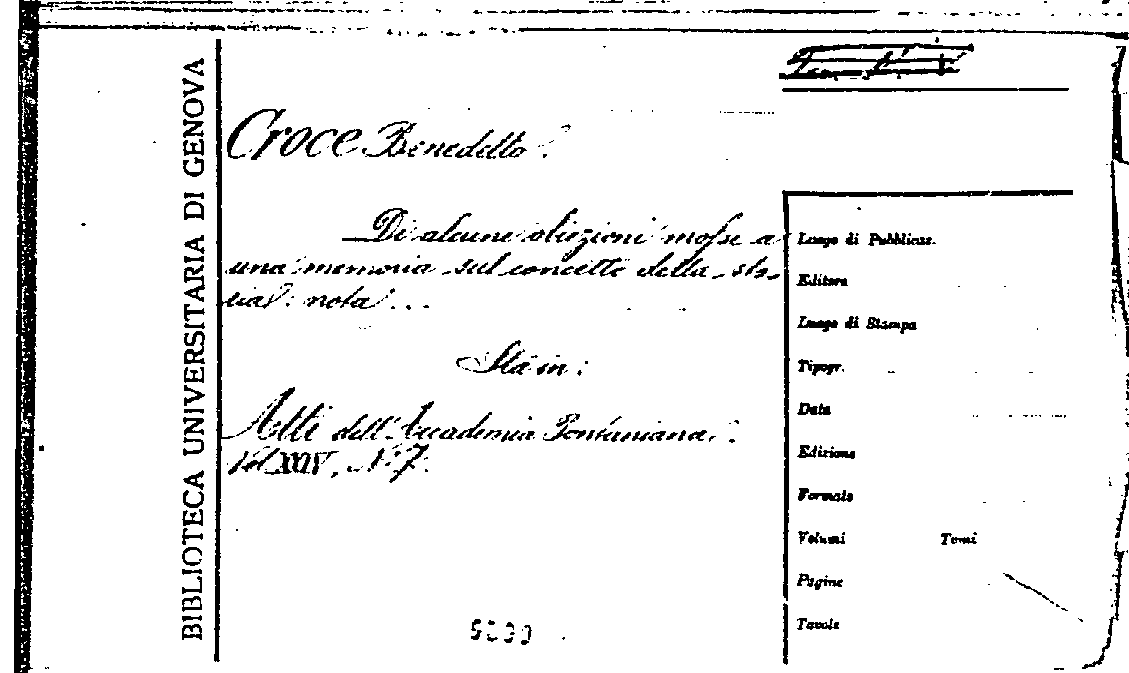 BIBLIOTECA UNIVERSITARIA DI GENOVA
Croce Benedetto.
Di alcune obiezioni mosse a
una memoria sul concetto della sto-
ria: nota...
Sta in:
Atti dell'Accademia Pontaniana.
Vol XXIV, N. 7.
Luogo di Pubblicaz.
Editore
Luogo di Stampa
Tipogr.
Data
Edizione
Formato
Volumi Tomi
Pagine
Tavole